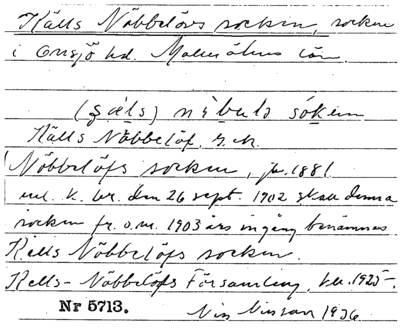 Källs Nöbbelövs socken, socken
i Onsjö hd. Malmöhus län.
(s̨äls) nöbuls sóken
Källs Nöbbelöf, s. ch.
Nöbbelöfs socken, jb. 1881
enl. k. br. den 26 sept. 1902 skall denna
socken fr. o. m. 1903 års ingång benämnas
Kells Nöbbelöfs socken.
Kells-Nöbbelöfs Församling, 1925.
Nr 5713.
Nils Nilsson 1936